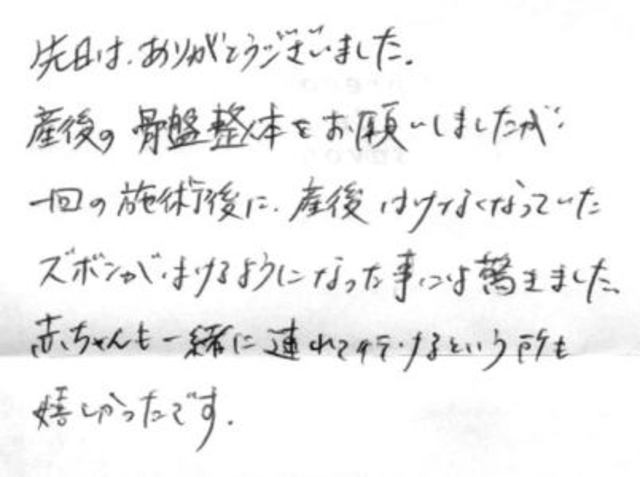 先日は、ありがとうございました。
産後の骨盤整体をお願いしましたが、
一回の施術後に、産後はけなくなっていた
ズボンがはけるようになった事には驚きました。
赤ちゃんも一緒に連れて行けるという所も
嬉しかったです。